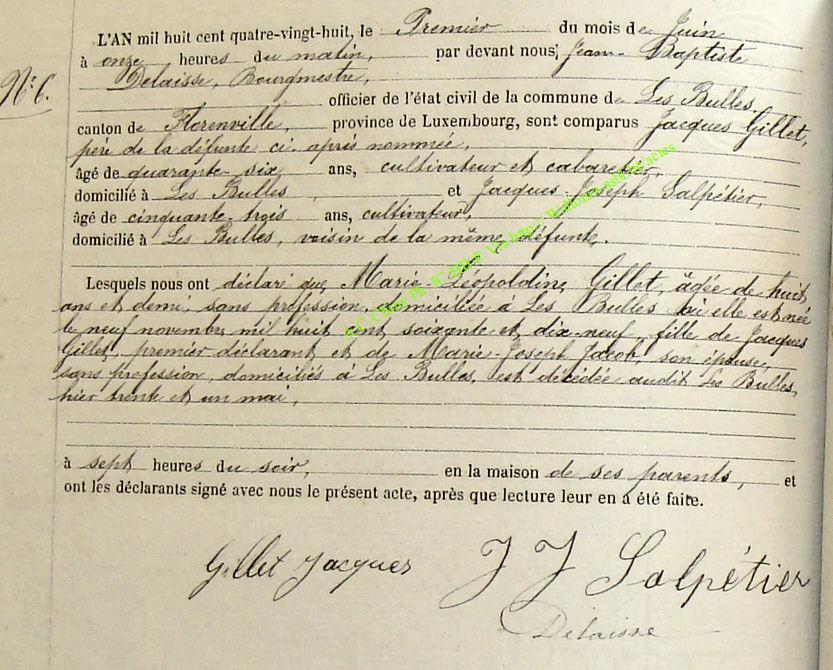 L'AN mil huit cent quatre-vingt-huit, le Premier du mois de Juin
à onze heures du matin, par devant nous, Jean-Baptiste
Delaisse, Bourgmestre,
N° 6.
officier de l'état civil de la commune de Les Bulles,
canton de Florenville, province de Luxembourg, sont comparus Jacques Gillet,
père de la défunte ci-après nommée,
âgé de quarante-six ans, cultivateur et cabaretier,
domicilié à Les Bulles, et Jacques-Joseph Salpétier,
âgé de cinquante-trois ans, cultivateur,
domicilié à Les Bulles, voisin de la même défunte.
Lesquels nous ont déclaré que Marie-Léopoldine Gillet, âgée de huit
ans et demi, sans profession, domiciliée à Les Bulles où elle est née
le neuf novembre mil huit cent soixante et dix-neuf, fille de Jacques
Gillet, premier déclarant et de Marie-Joseph Jacob, son épouse,
sans profession, domiciliés à Les Bulles, est décédée audit Les Bulles,
hier trente et un mai,
à sept heures du soir, en la maison de ses parents, et
ont les déclarants signé avec nous le présent acte, après que lecture leur en a été faite.
Gillet Jacques
J J Salpétier
Delaisse